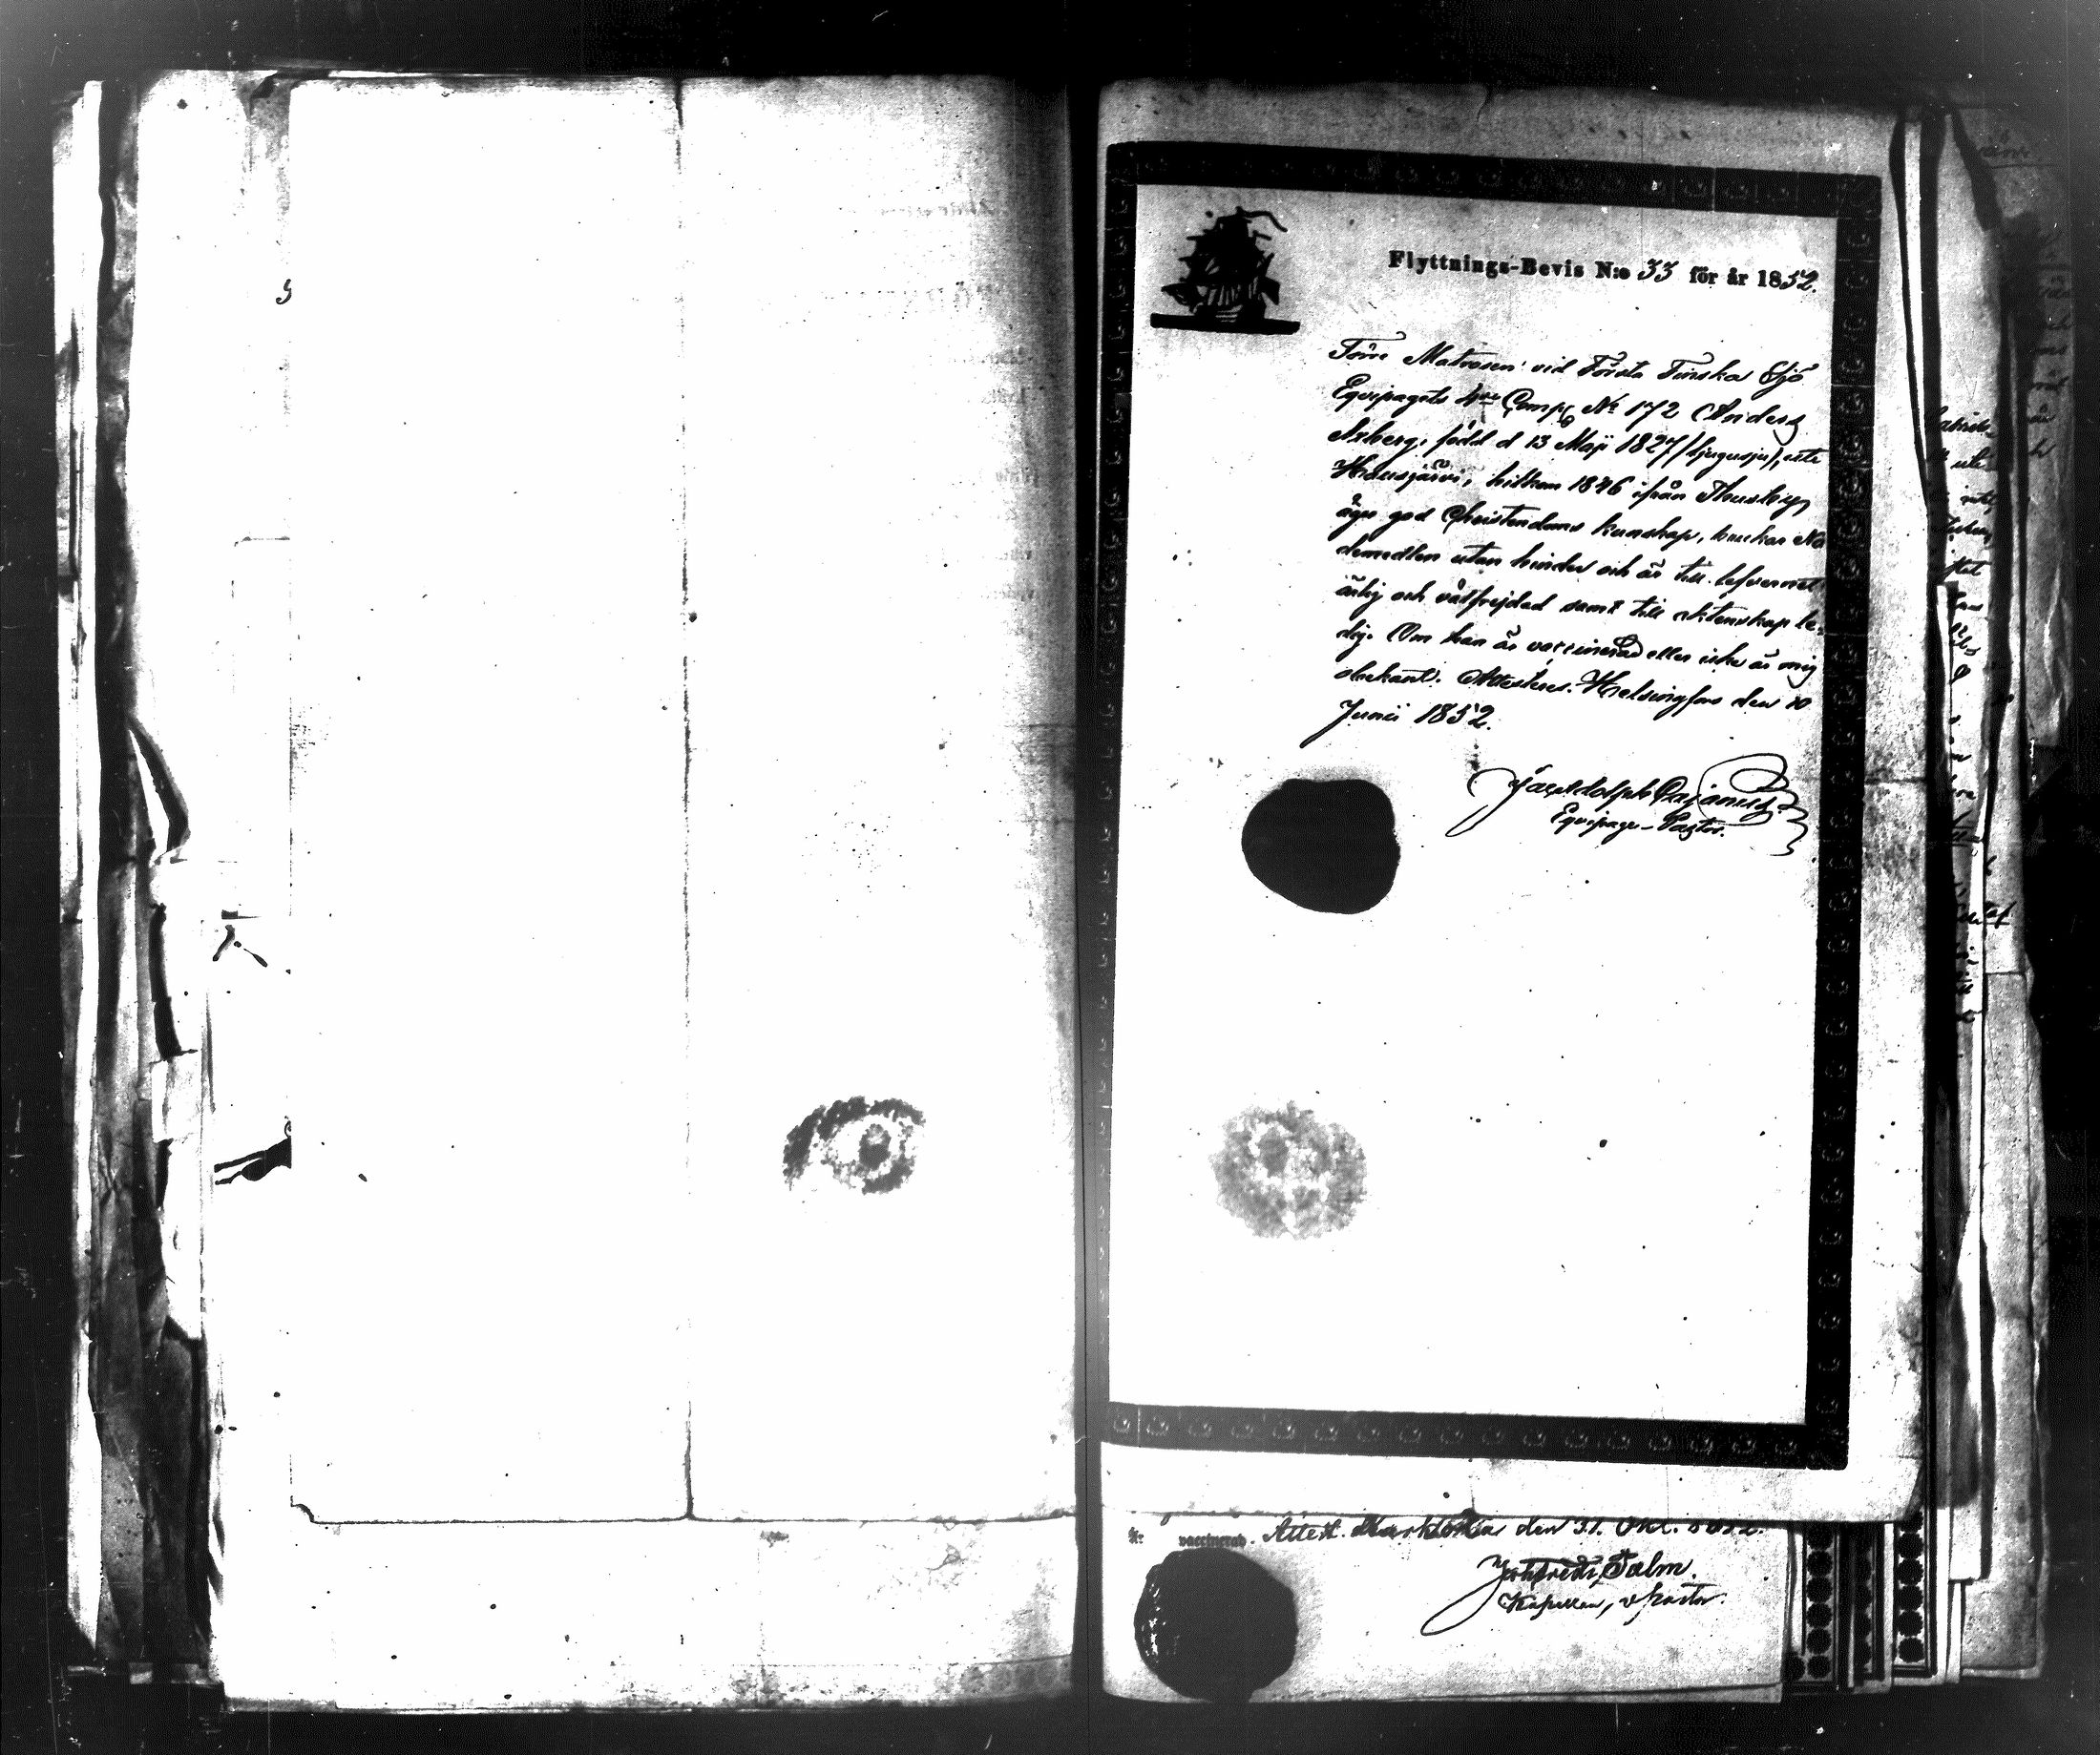 Flyttnings-Bevis N:o 33 för år 1852.
Förre Matrosen vid Första Finska Sjö
Equipagets 4de Comp. No 172 Anders
Asberg, född d 13 Maji 1827 uti
Hausjärvi, hitkom 1846 ifrån Thusby,
äger god Christendoms kunskap, brukar Nå
demedlen utan hinder och är till lefvernet
ärlig och välfrejdad samt till äktenskap le-
dig. Om han är vaccinerad eller icke är mig
obekant. Attesteras. Helsingfors den 10
Junii 1852.
Equipage-Pastor.
Är vaccinerad. Attest. den 31. Okt. 1852.
Salm.
Kapellan, v. Pastor.